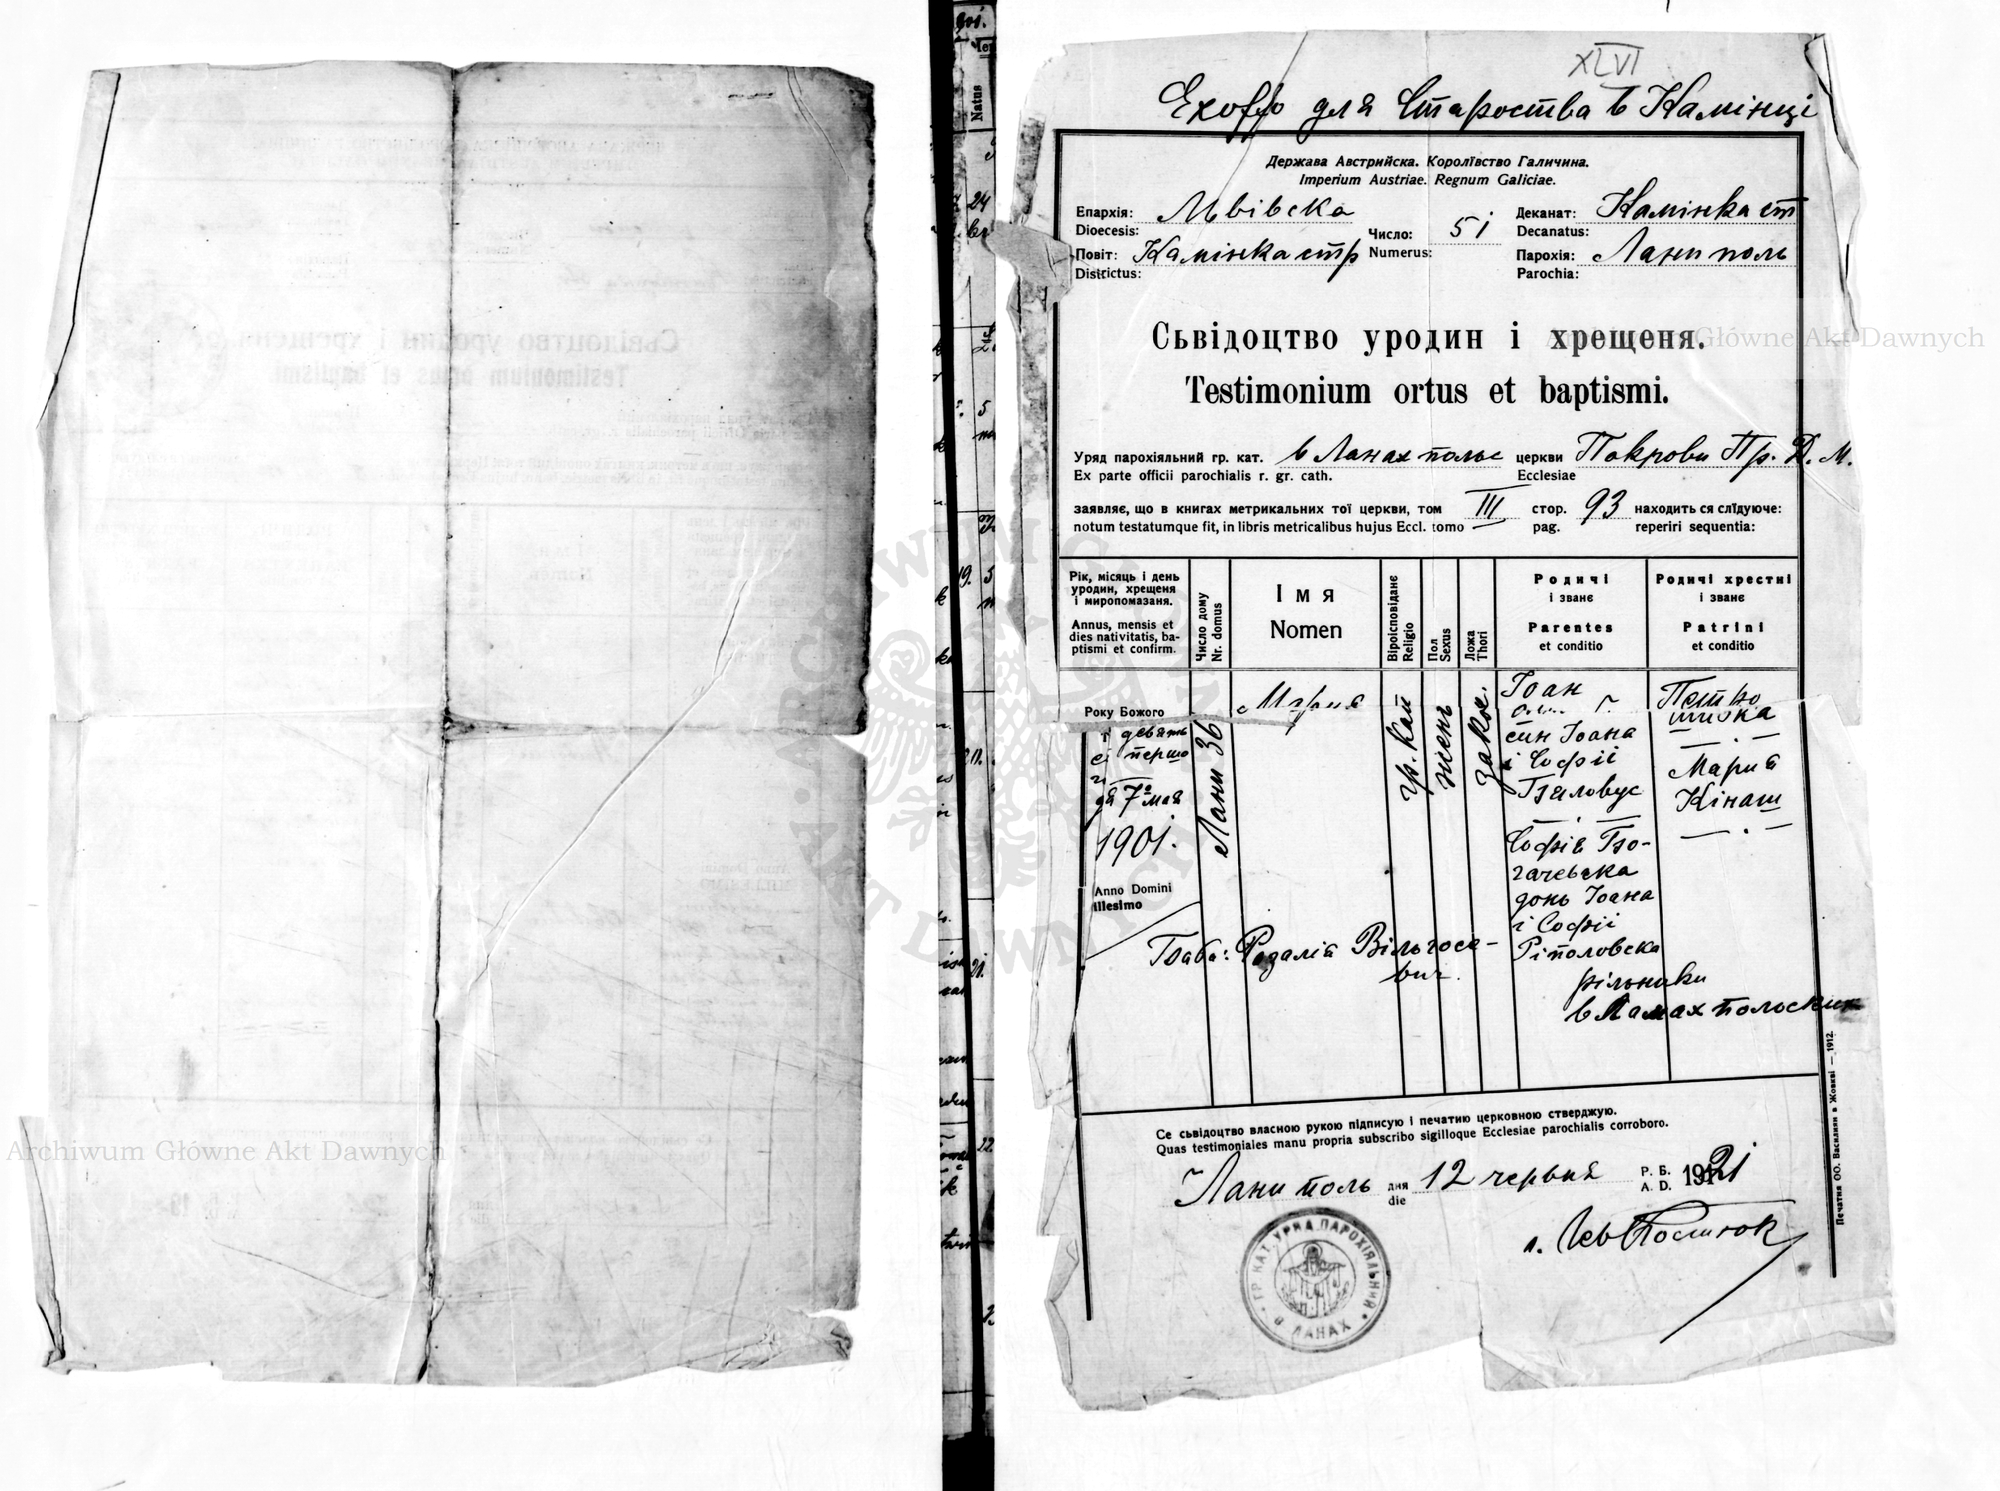 XLVI
Exoffo для Староства в Камінці
Держава Австрийска. Королївство Галичина.
Imperium Austriae. Regnum Galiciae.
Епархія: Львівска
Dioecesis:
Число: 51
Numerus:
Деканат: Камінка ст
Decanatus:
Повіт: Камінка стр
Districtus:
Парохія: Лани поль
Parochia:
Сьвідоцтво уродин і хрещеня.
Testimonium ortus et baptismi.
Уряд парохіяльний гр. кат. в Ланах польс церкви Покрови Пр. Д. М.
Ex parte officii parochialis r. gr. cath. Ecclesiae
заявляє, що в книгах метрикальних тої церкви, том III стор. 93 находить ся слїдуюче:
notum testatumque fit, in libris metricalibus hujus Eccl. tomo pag. reperiri sequentia:
Рік, місяць і день
уродин, хрещеня
і миропомазаня.
Annus, mensis et
dies nativitatis, ba-
ptismi et confirm.
Число дому
Nr. domus
Імя
Nomen
Віроісповіданє
Religio
Пол
Sexus
Ложа
Thori
Родичі
і званє
Parentes
et conditio
Родичі хрестні
і званє
Patrini
et conditio
Року Божого
девять
першо
7го мая
1901.
Anno Domini
illesimo
Лани 36
Мария
гр. кат
жень
закон.
Іоан
син Іоана
і Софії
Софія
гачевска
донь Іоана
і Софії
Ріполовска
рільники
в Ланах польских
Петро
Мария
Кінаш
Баба: Розалія Вільгосе-
вич.
Се сьвідоцтво власною рукою підписую і печатию церковною стверджую.
Quas testimoniales manu propria subscribo sigilloque Ecclesiae parochialis corroboro.
Лани поль дня 12 червня Р. Б. 1921
die A. D.
о. Лев
ГР. КАТ. УРЯД ПАРОХІЯЛЬНИЙ
В ЛАНАХ
Печатня ОО. Василиян в Жовкві — 1912.
Natus
Archiwum Główne Akt Dawnych
Archiwum Główne Akt Dawnych
ARCHIWUM GŁÓWNE AKT DAWNYCH